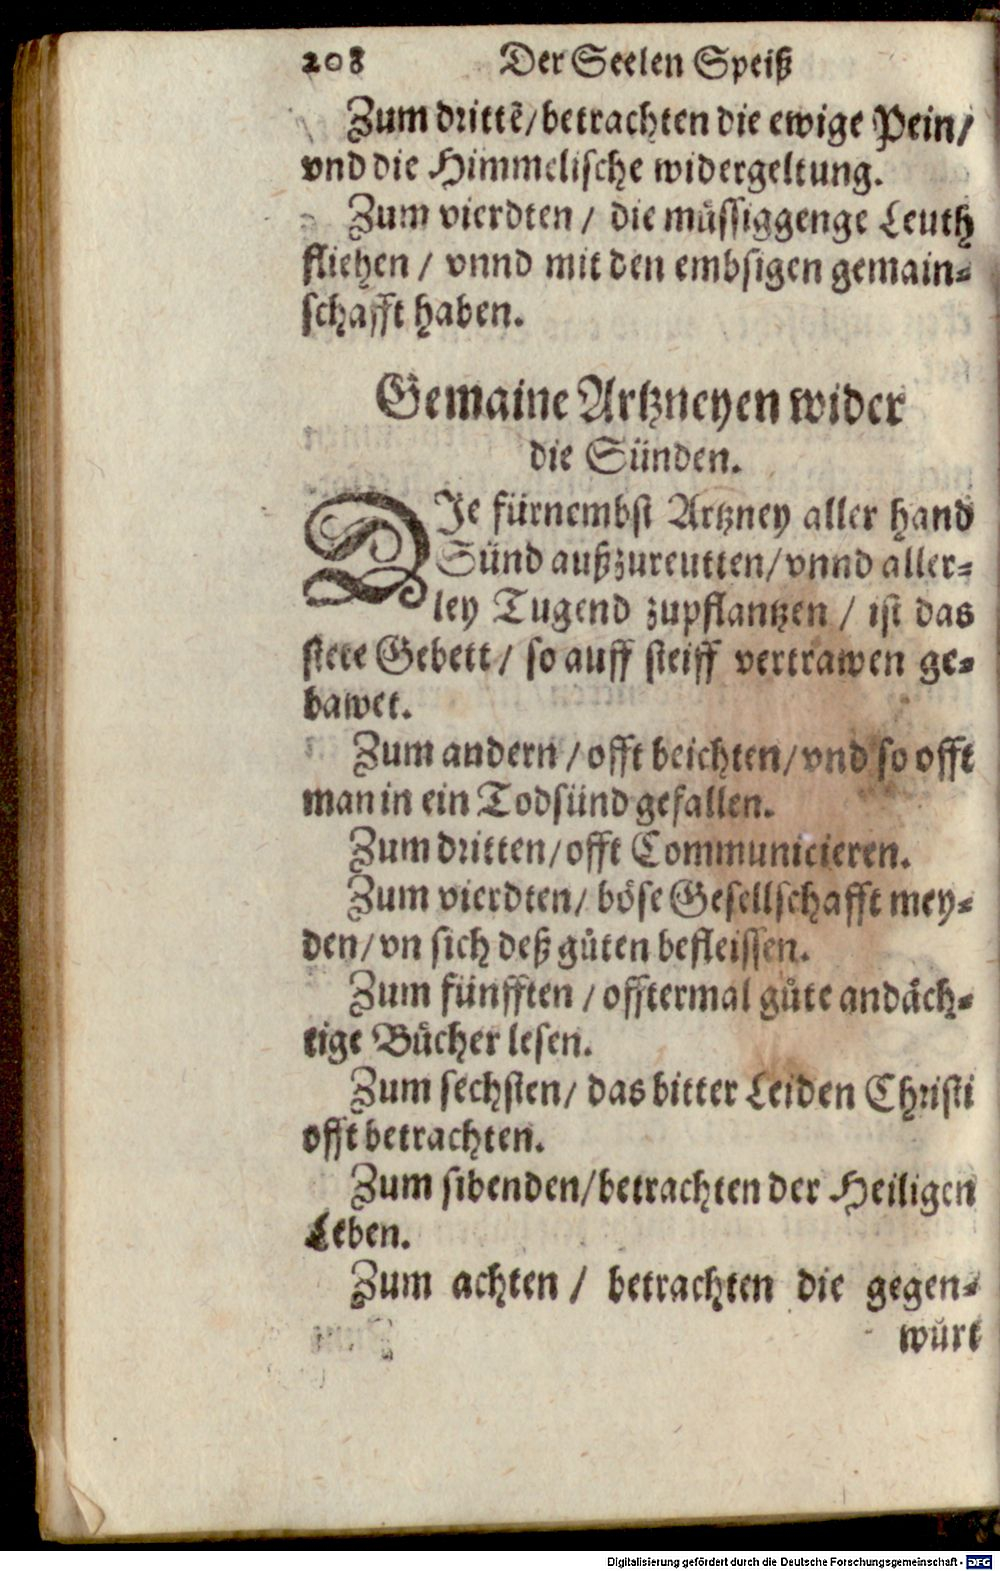 208 Der Seelen Speiß
Zum drittẽ/betrachten die ewige Pein/
vnd die Himmelische widergeltung.
Zum vierdten / die müssiggenge Leuth
fliehen / vnnd mit den embsigen gemain-
schafft haben.
Gemaine Artzneyen wider
die Sünden.
DIe fürnembst Artzney aller hand
Sünd außzureutten/vnnd aller-
ley Tugend zupflantzen / ist das
stete Gebett / so auff steiff vertrawen ge-
bawet.
Zum andern / offt beichten/vnd so offt
man in ein Todsünd gefallen.
Zum dritten/offt Communicieren.
Zum vierdten/ böse Gesellschafft mey-
den/vn sich deß gůten befleissen.
Zum fünfften / offtermal gůte andäch-
tige Bücher lesen.
Zum sechsten/ das bitter Leiden Christi
offt betrachten.
Zum sibenden/betrachten der Heiligen
Leben.
Zum achten / betrachten die gegen-
würt
Digitalisierung gefördert durch die Deutsche Forschungsgemeinschaft - DFG